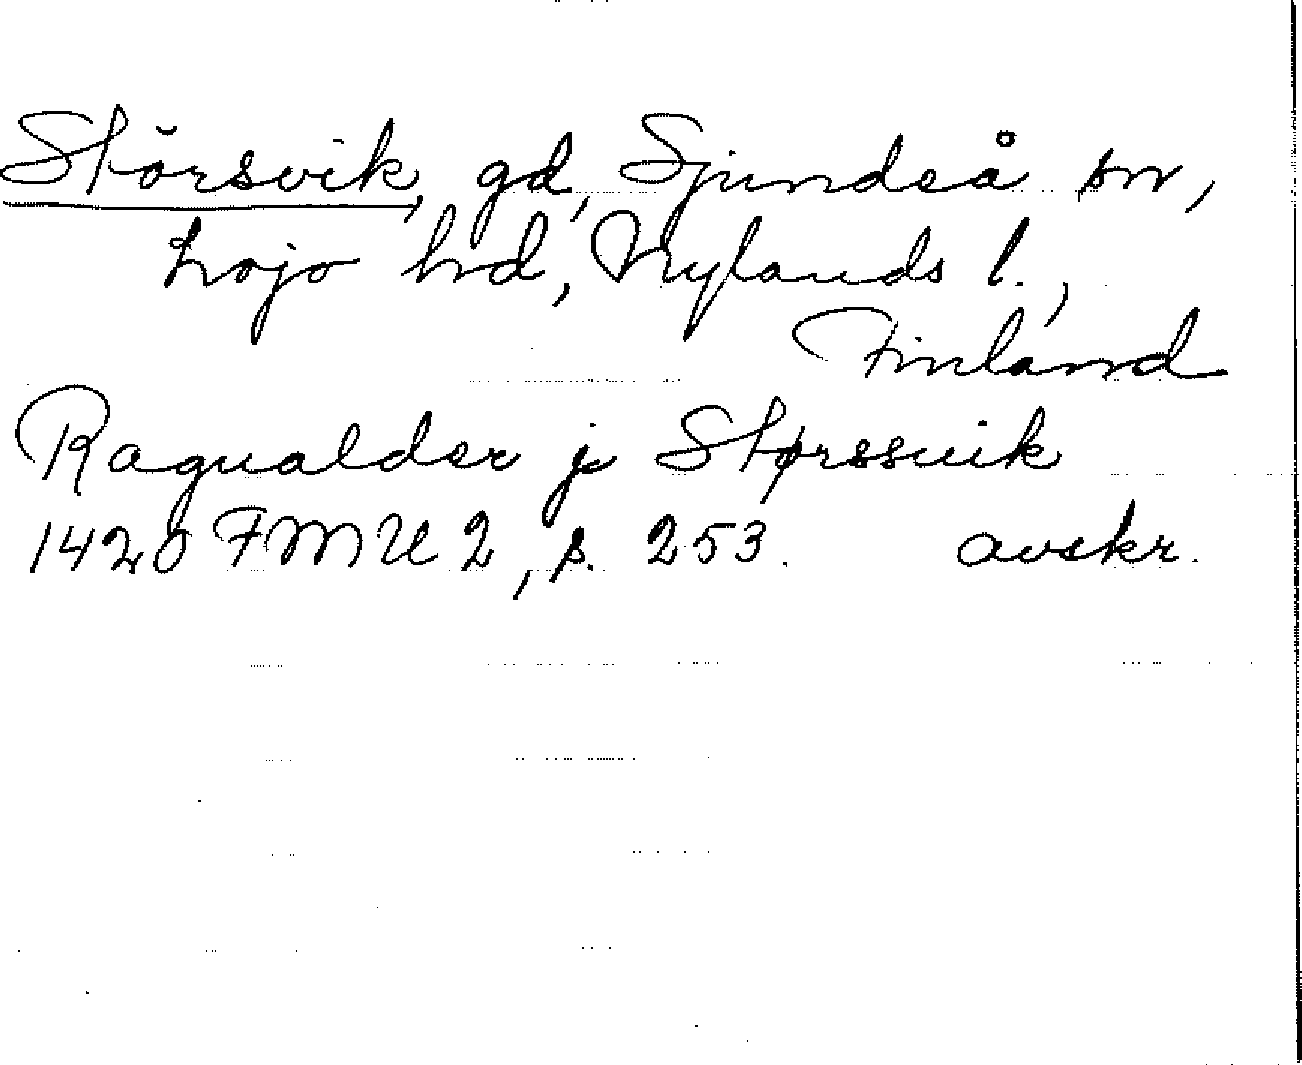 Störsvik, gd, Sjundeå sn,
Lojo hd, Nylands l.,
Finland
Ragualder j Størssuik
1420 FMU 2, s. 253. avskr.